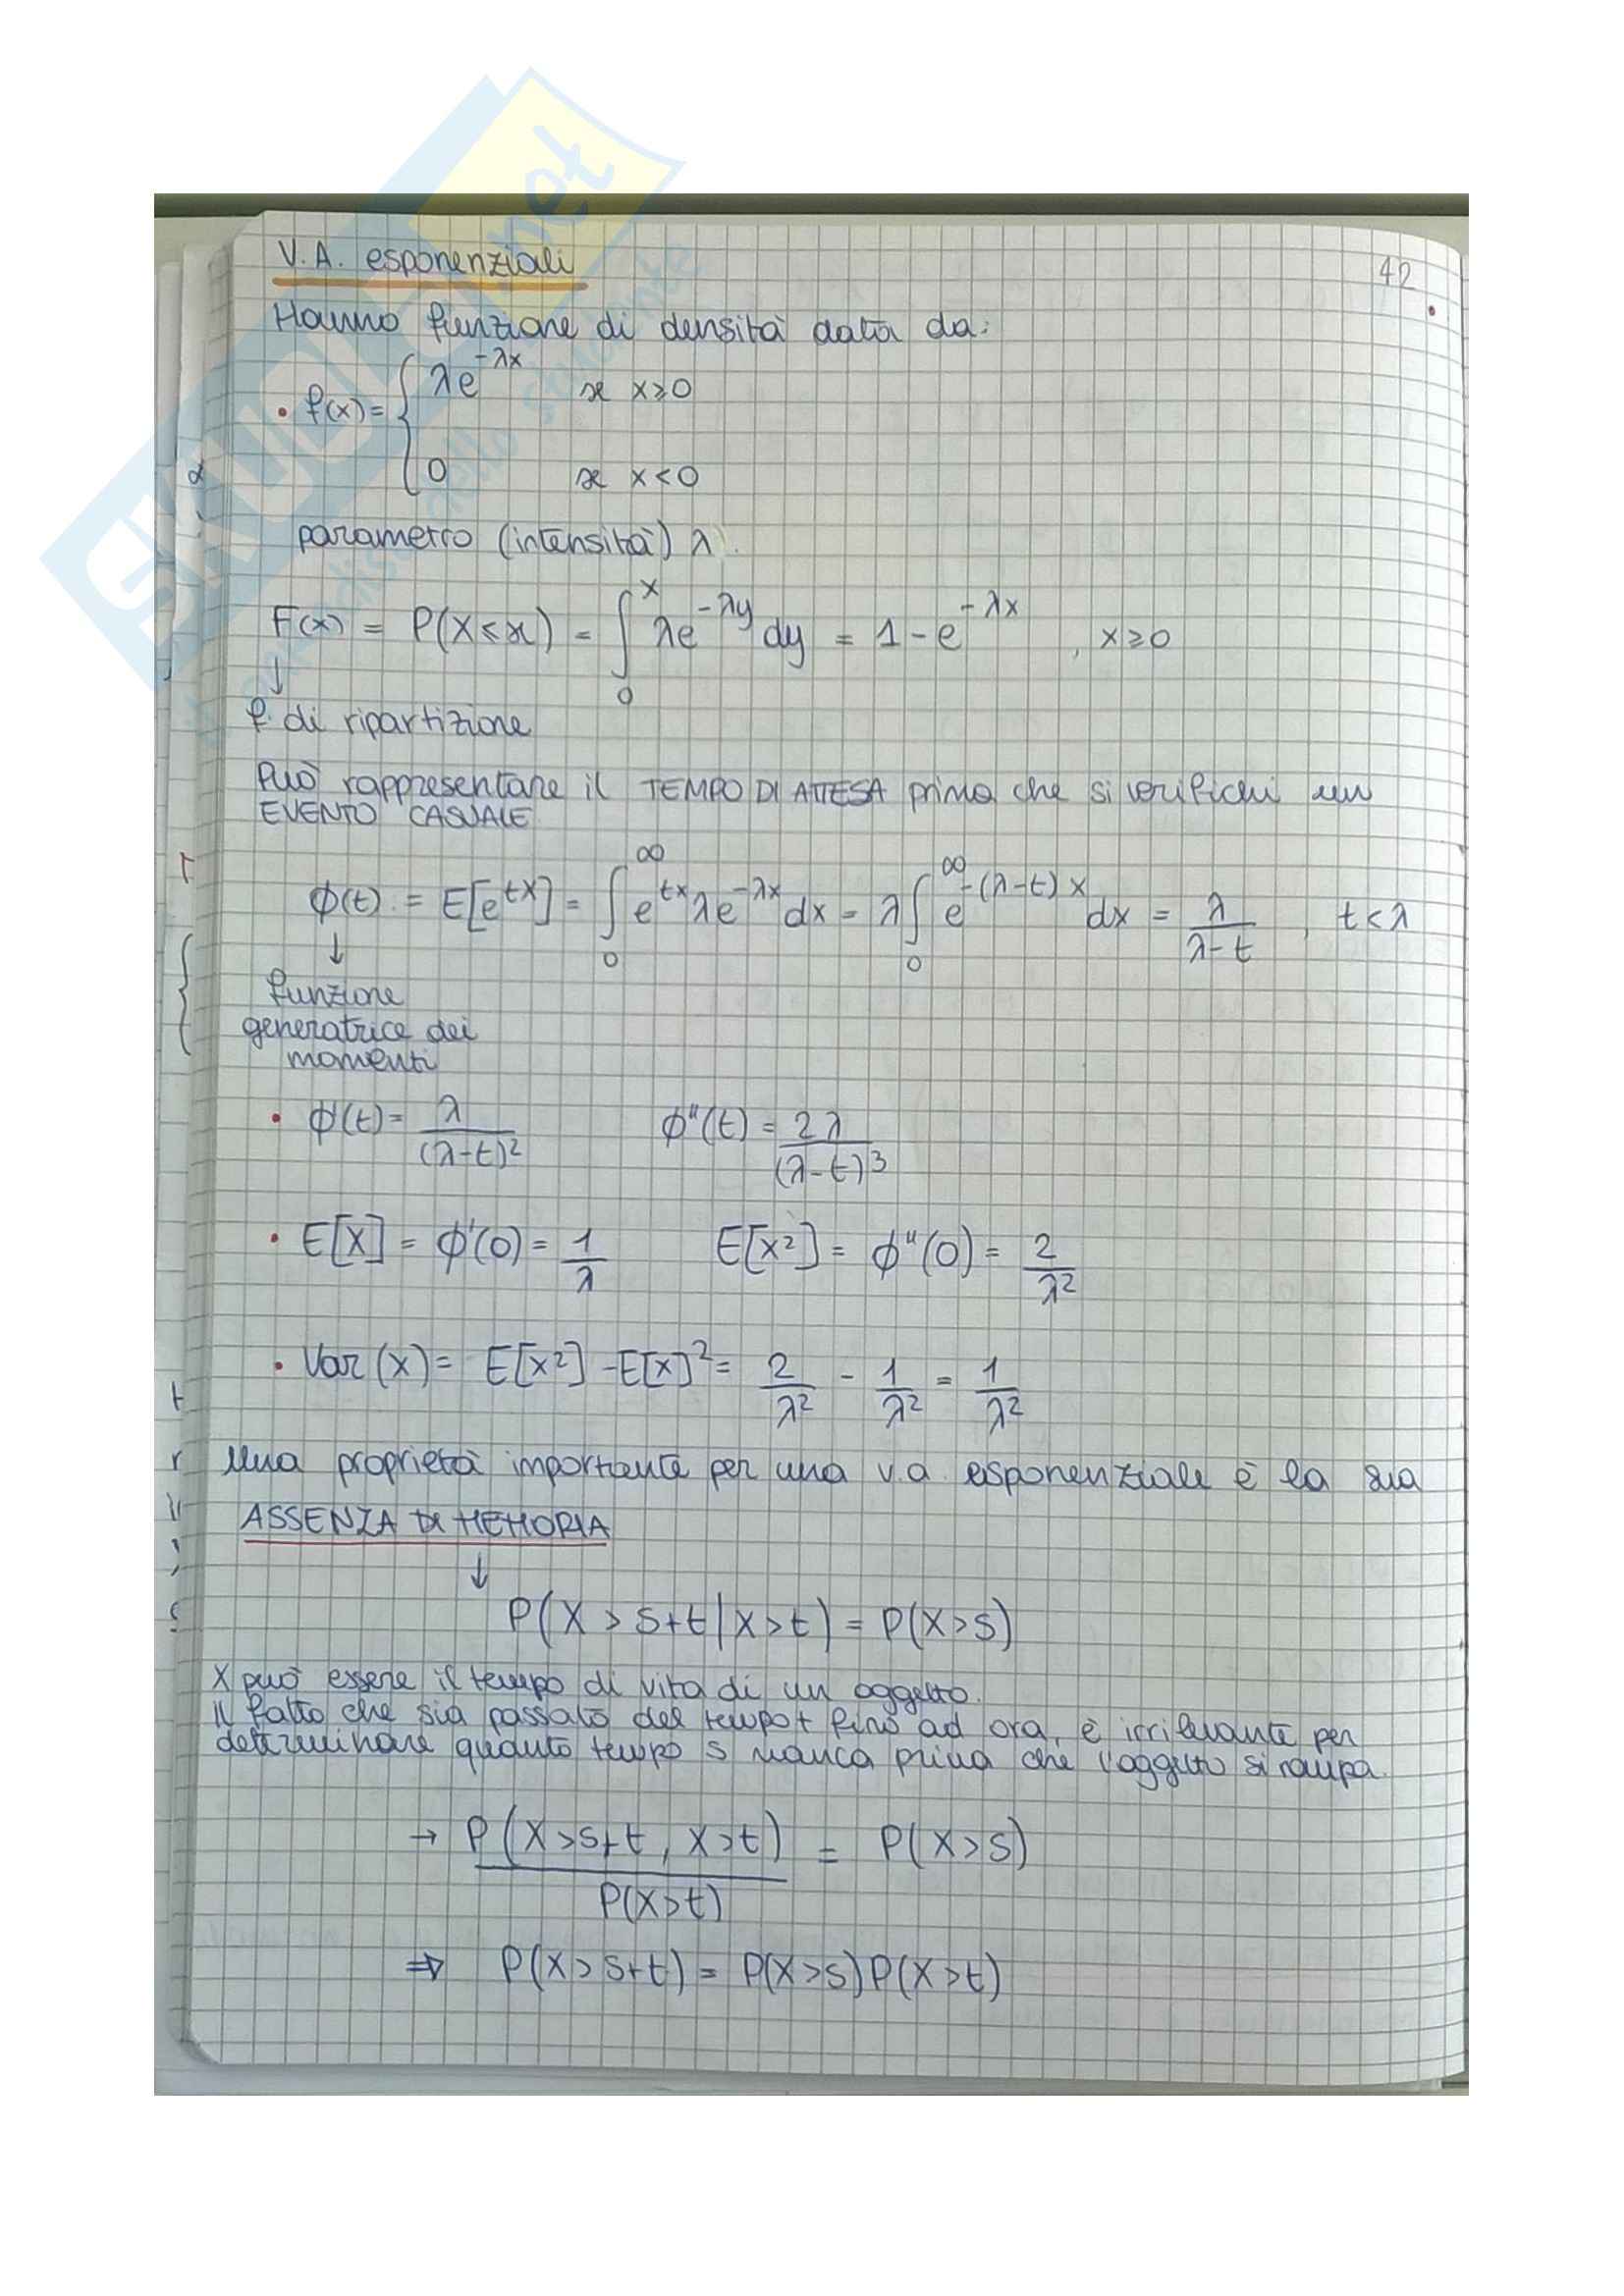 V.A. esponenziali
42
Hanno funzione di densità data da:
• f(x) = { λe^{-λx} se x ≥ 0
0 se x < 0
parametro (intensità) λ.
F(x) = P(X ≤ x) = ∫_0^x λe^{-λy} dy = 1 - e^{-λx} , x ≥ 0
↓
f. di ripartizione
Può rappresentare il TEMPO DI ATTESA prima che si verifichi un
EVENTO CASUALE
ϕ(t) = E[e^{tX}] = ∫_0^∞ e^{tx} λe^{-λx} dx = λ∫_0^∞ e^{-(λ-t)x} dx = λ/(λ-t) , t < λ
↓
funzione
generatrice dei
momenti
• ϕ'(t) = λ/(λ-t)² ϕ"(t) = 2λ/(λ-t)³
• E[X] = ϕ'(0) = 1/λ E[X²] = ϕ"(0) = 2/λ²
• Var(X) = E[X²] - E[X]² = 2/λ² - 1/λ² = 1/λ²
Una proprietà importante per una v.a. esponenziale è la sua
ASSENZA DI MEMORIA
↓
P(X > s+t | X > t) = P(X > s)
X può essere il tempo di vita di un oggetto.
Il fatto che sia passato del tempo t fino ad ora, è irrilevante per
determinare quanto tempo s manca prima che l'oggetto si rompa.
→ P(X > s+t, X > t) / P(X > t) = P(X > s)
⇒ P(X > s+t) = P(X > s) P(X > t)